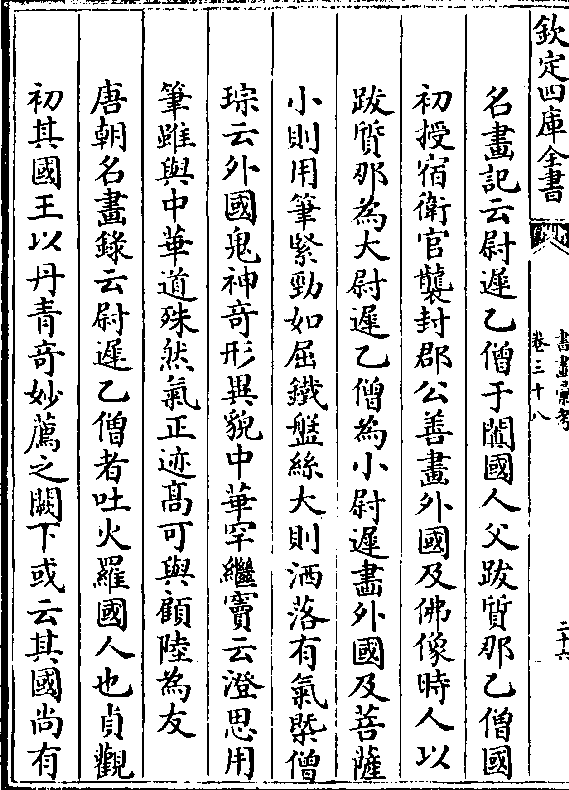 欽定四庫全書
書畫彙考
卷三十八
二十六
名畫記云尉遲乙僧于闐國人父跋質那乙僧國
初授宿衛官襲封郡公善畫外國及佛像時人以
跋質那為大尉遲乙僧為小尉遲畫外國及菩薩
小則用筆緊勁如屈鐵盤絲大則洒落有氣槩僧
琮云外國鬼神奇形異貌中華罕繼竇云澄思用
筆雖與中華道殊然氣正迹髙可與顧陸為友
唐朝名畫錄云尉遲乙僧者吐火羅國人也貞觀
初其國王以丹青奇妙薦之闕下或云其國尚有